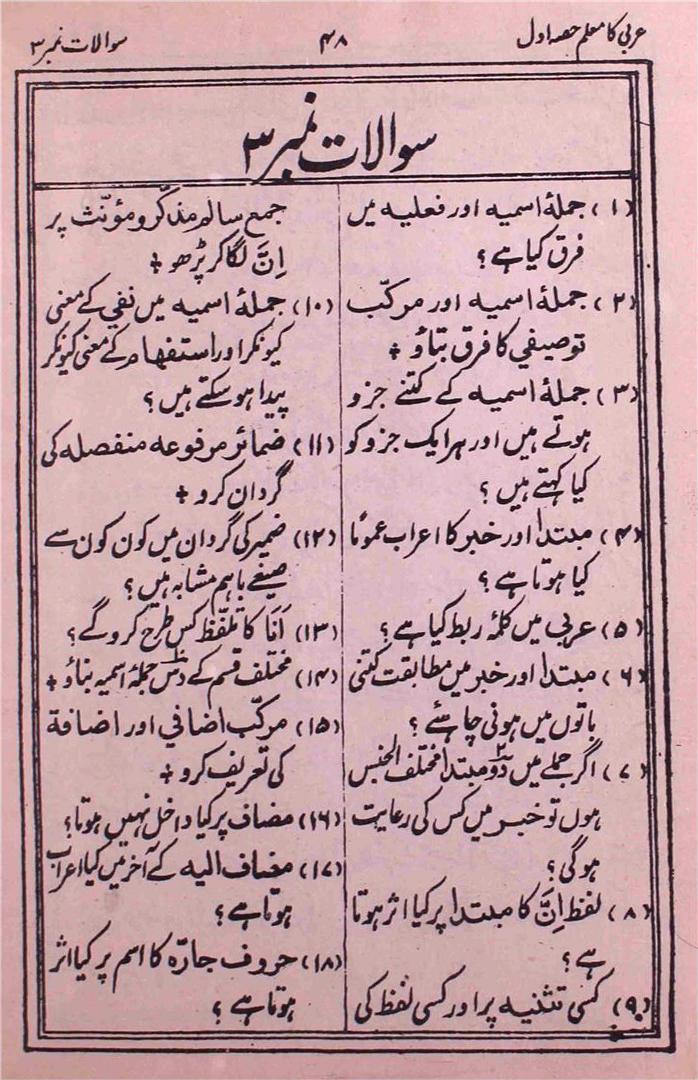 عربی کا معلم حصہ اول
۴۸
سوالات نمبر ۳
سوالات نمبر ۳
(۱) جملۂ اسمیہ اور فعلیہ میں
فرق کیا ہے؟
(۲) جملۂ اسمیہ اور مرکّب
توصیفی کا فرق بتاؤ +
(۳) جملۂ اسمیہ کے کتنے جزو
ہوتے ہیں اور ہر ایک جزو کو
کیا کہتے ہیں؟
(۴) مبتدا اور خبر کا اعراب عمومًا
کیا ہوتا ہے؟
(۵) عربی میں کلمۂ ربط کیا ہے؟
(۶) مبتدا اور خبر میں مطابقت کتنی
باتوں میں ہونی چاہئے؟
(۷) اگر جملے میں دو۲ مبتدا مختلف الجنس
ہوں تو خبر میں کس کی رعایت
ہوگی؟
(۸) لفظ اِنَّ کا مبتدا پر کیا اثر ہوتا
ہے؟
(۹) کسی تثنیہ پر اور کسی لفظ کی
جمع سالم مذکّر و مؤنّث پر
اِنَّ لگا کر پڑھو +
(۱۰) جملۂ اسمیہ میں نفی کے معنی
کیونکر اور استفہام کے معنی کیونکر
پیدا ہو سکتے ہیں؟
(۱۱) ضمائر مرفوعہ منفصلہ کی
گردان کرو +
(۱۲) ضمیر کی گردان میں کون کون سے
صیغے باہم مشابہ ہیں؟
(۱۳) اَنَا کا تلفّظ کس طرح کروگے؟
(۱۴) مختلف قسم کے دس جملۂ اسمیہ بناؤ +
(۱۵) مرکّب اضافی اور اضافة
کی تعریف کرو +
(۱۶) مضاف پر کیا داخل نہیں ہوتا؟
(۱۷) مضاف الیہ کے آخر میں کیا اعراب
ہوتا ہے؟
(۱۸) حروف جارّہ کا اسم پر کیا اثر
ہوتا ہے؟